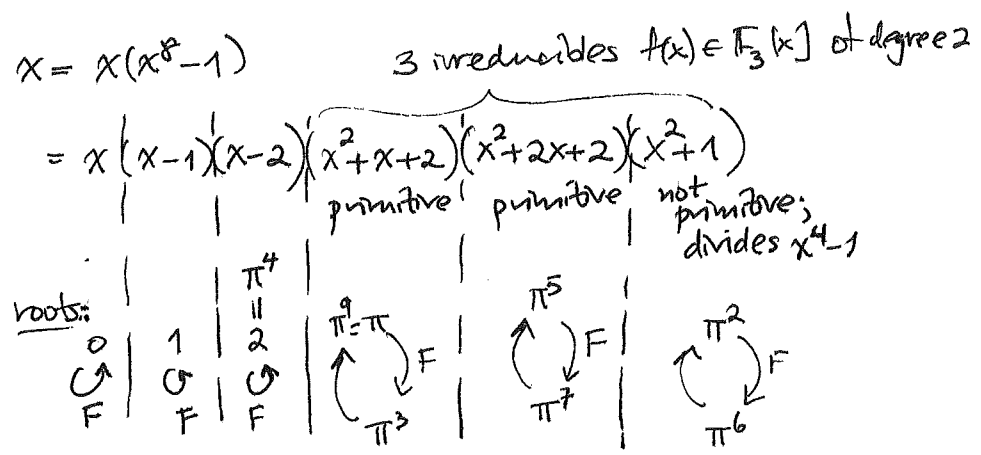 x = x(x⁸-1)
3 irreducibles f(x) ∈ F₃[x] of degree 2
= x(x-1)(x-2)(x²+x+2)(x²+2x+2)(x²+1)
primitive primitive not primitive;
divides x⁴-1
roots:
0 1 π⁴ = 2 π⁹=π π⁵ π²
F F F F F F
π³ π⁷ π⁶